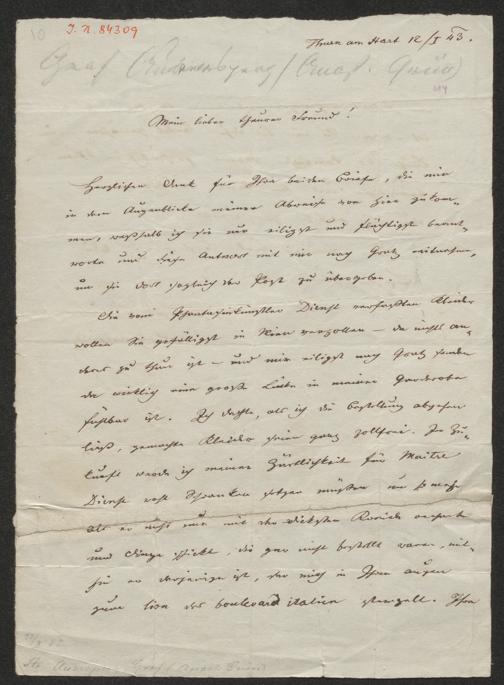 I. N. 84309
Thurn am Hart 12/I 43.
Graf Auersperg (Anast. Grün)
Mein lieber theurer Freund!
Herzlichen Dank für Ihre beiden Briefe, die mir
in dem Augenblicke meiner Abreise von hier zukom-
men, weßhalb ich sie nur eiligst und flüchtigst beant-
worte und diese Antwort mit mir nach Gratz mitnehme,
um sie dort sogleich der Post zu übergeben.
Die vom Dienst verfaßten Kleider
wollen Sie gefälligst in Wien verzollen – da nichts an-
deres zu thun ist – und mir eiligst nach Gratz senden
da wirklich eine große Lücke in meiner Garderobe
fühlbar ist. Ich dachte, als ich die Bestellung abgehen
ließ, gemachte Kleider seien ganz zollfrei. In Zu-
kunft werde ich meiner Zärtlichkeit für Maitre
Dienst wohl Schranken setzen müssen um so mehr
als er nicht nur mit der
und Dinge schickt, die gar nicht bestellt waren,
er derjenige ist, der mich in Ihren Augen
zum lion des boulevard italien stempelt. Ihre